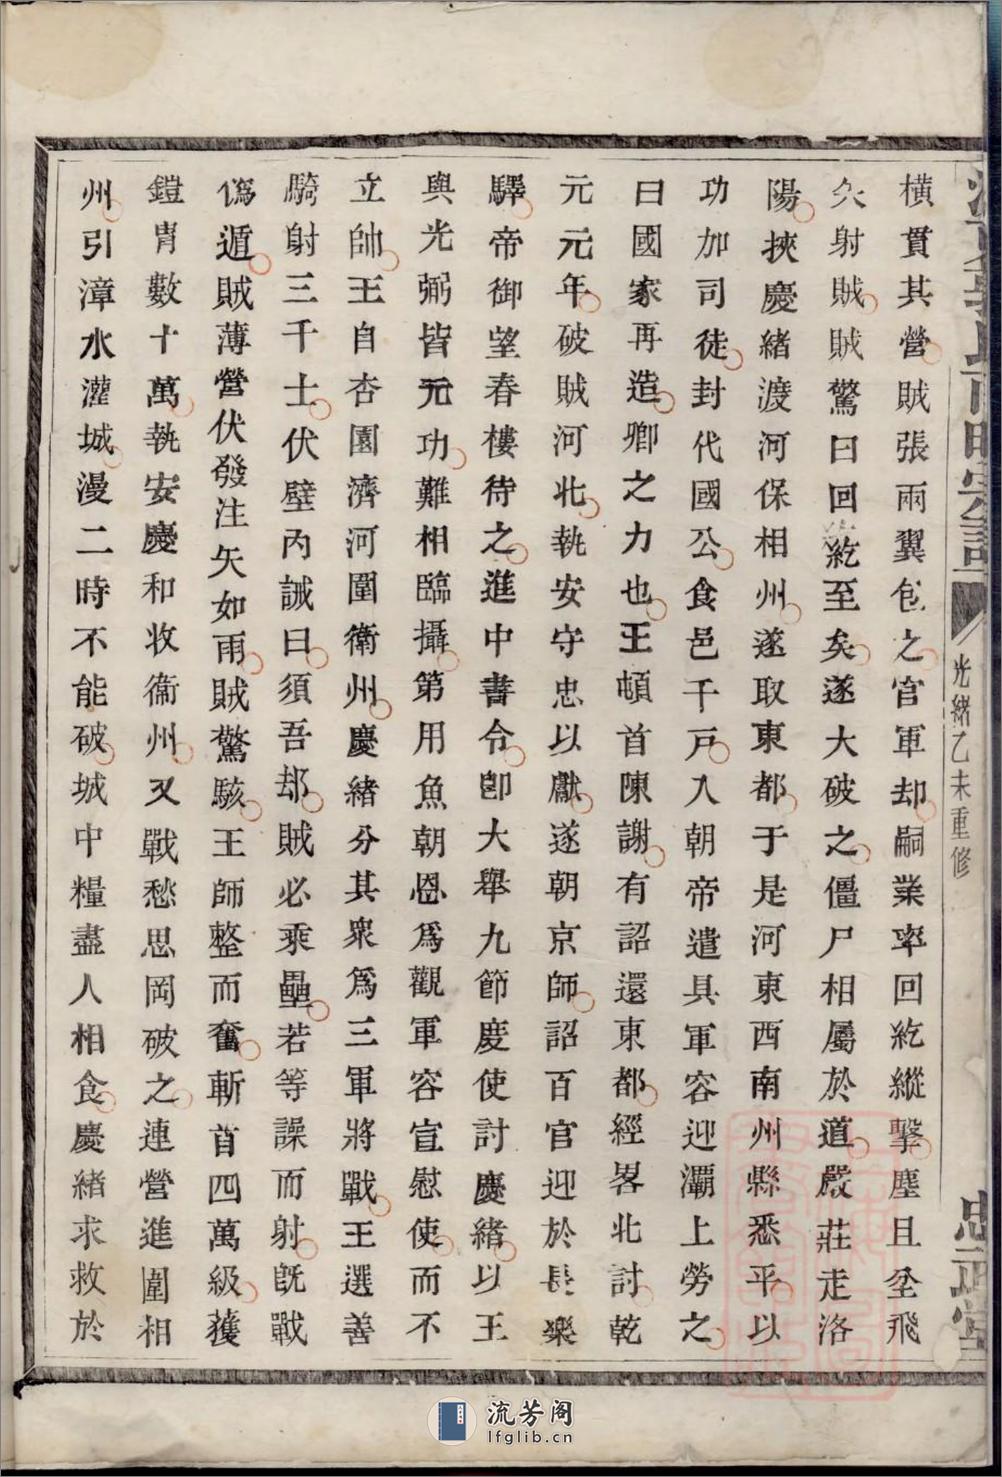 橫貫其營賊張兩翼包之官軍却嗣業率回紇縱擊塵且坌飛
矢射賊賊驚曰回紇至矣遂大破之僵尸相屬於道嚴莊走洛
陽挾慶緒渡河保相州遂取東都于是河東西南州縣悉平以
功加司徒封代國公食邑千戸入朝帝遣具軍容迎灞上勞之
曰國家再造卿之力也王頓首陳謝有詔還東都經畧北討乾
元元年破賊河北執安守忠以獻遂朝京師詔百官迎於長樂
驛帝御望春樓待之進中書令卽大舉九節度使討慶緒以王
與光弼皆元功難相臨攝第用魚朝恩爲觀軍容宣慰使而不
立帥王自杏園濟河圍衛州慶緒分其衆爲三軍將戰王選善
騎射三千士伏壁內誡曰須吾却賊必乘壘若等譟而射旣戰
僞遁賊薄營伏發注矢如雨賊驚駭王師整而奮斬首四萬級獲
鎧胄數十萬執安慶和收衞州又戰愁思岡破之連營進圍相
州引漳水灌城漫二時不能破城中糧盡人相食慶緒求救於
光緒乙未重修
忠正堂
流芳阁
lfglib.cn